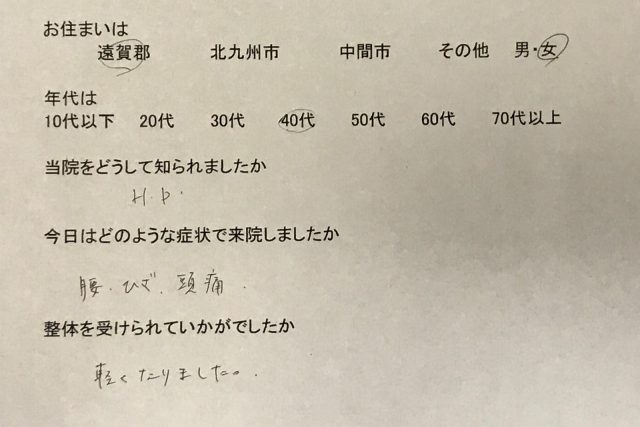 お住まいは
遠賀郡 北九州市 中間市 その他 男・女
年代は
10代以下 20代 30代 40代 50代 60代 70代以上
当院をどうして知られましたか
H.P.
今日はどのような症状で来院しましたか
腰・ひざ、頭痛.
整体を受けられていかがでしたか
軽くなりました。